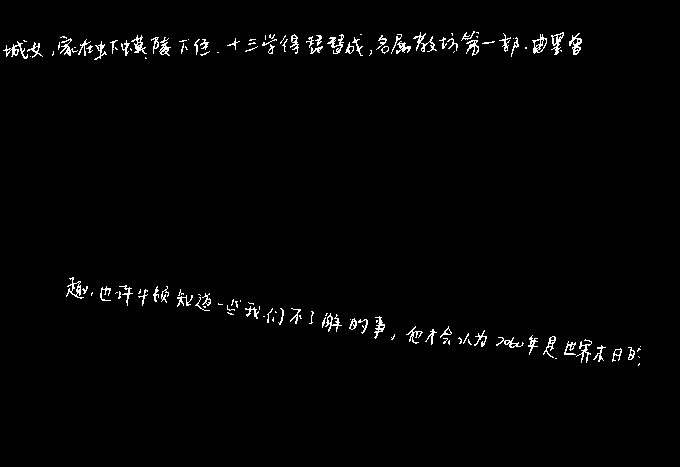 城女，家在虾蟆陵下住．十三学得琵琶成，名属教坊第一部．曲罢曾
趣，也许牛顿知道一些我们不了解的事，他才会认为2060年是世界末日的